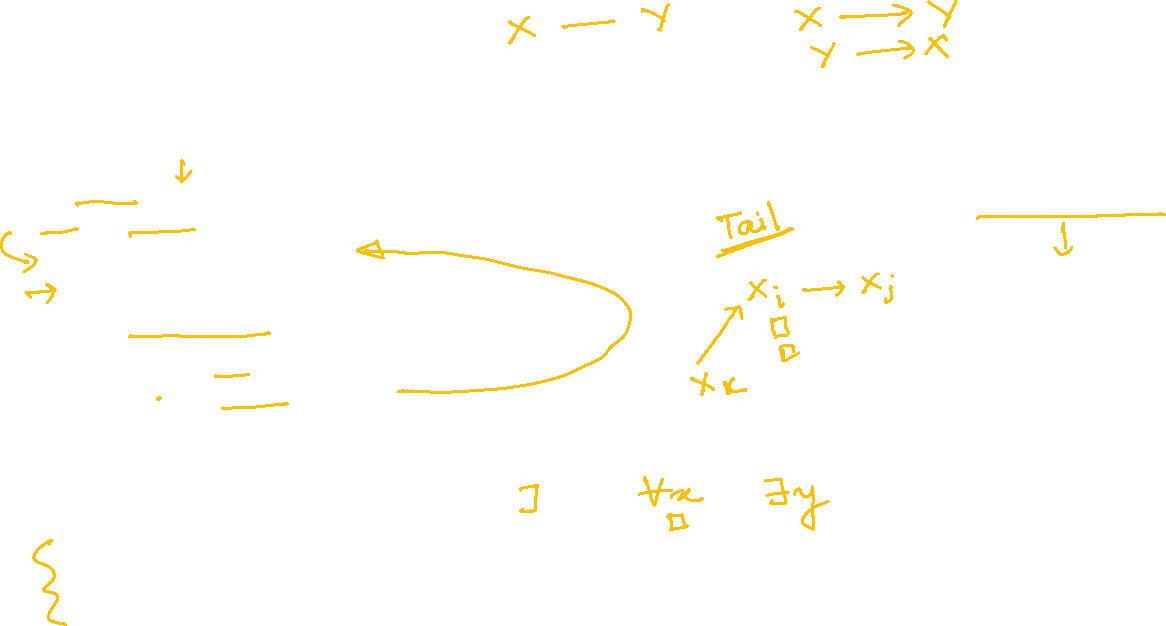 X — Y X → Y
Y → X
Tail
Xi → Xj
Xk
∃ ∀x ∃y